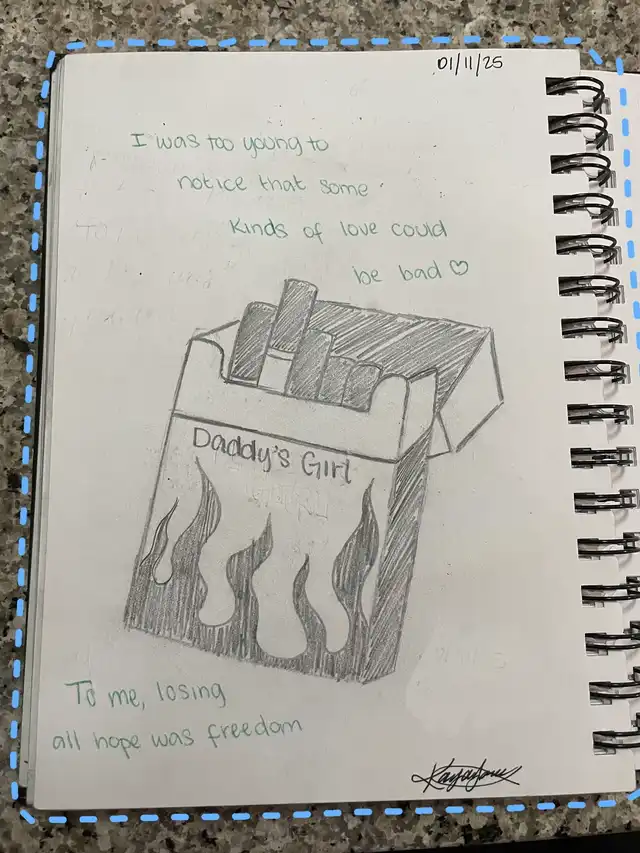 01/11/25
I was too young to
notice that some
kinds of love could
be bad ♡
Daddy's Girl
To me, losing
all hope was freedom